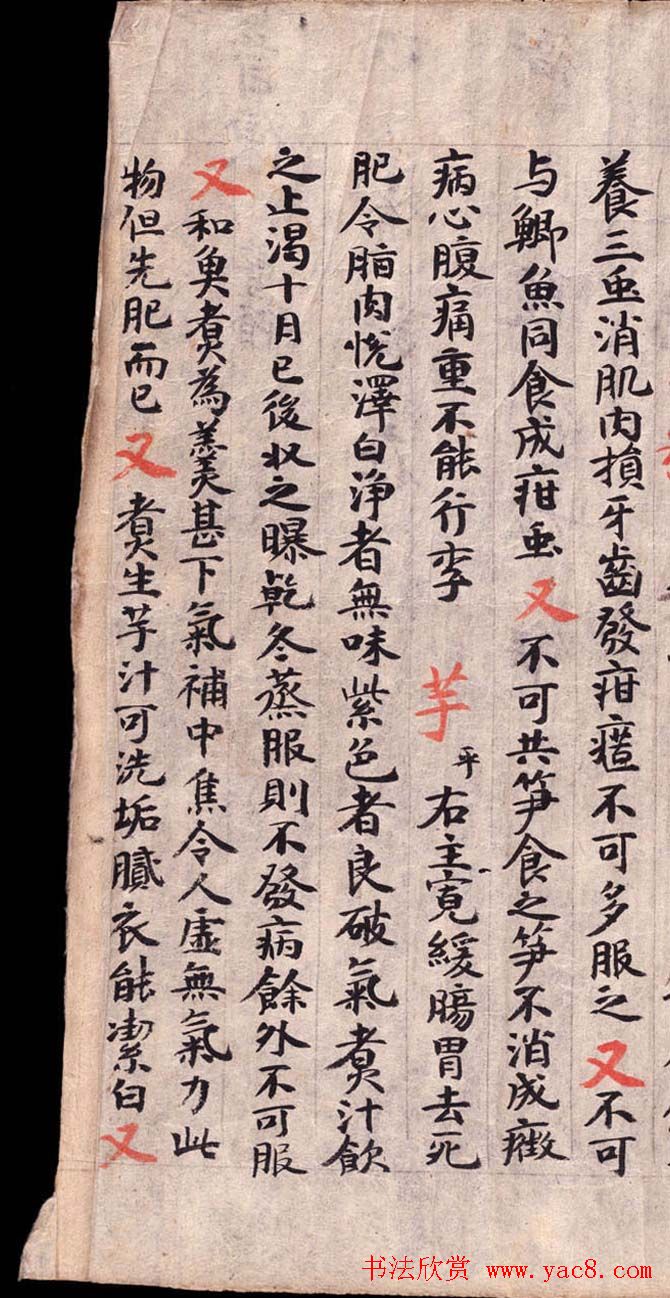 養三虫消肌肉損牙齒發疳𤻊不可多服之又不可
与鯽魚同食成疳虫又不可共笋食之笋不消成癥
病心腹痛重不能行李 芋平右主寬緩腸胃去死
肥令脂肉悅澤白淨者無味紫色者良破氣煮汁飲
之止渴十月已後收之曝乾冬蒸服則不發病餘外不可服
又和魚煮為羹甚下氣補中焦令人虛無氣力此
物但先肥而已又煮生芋汁可洗垢膩衣能潔白又
书法欣赏 www.yac8.com